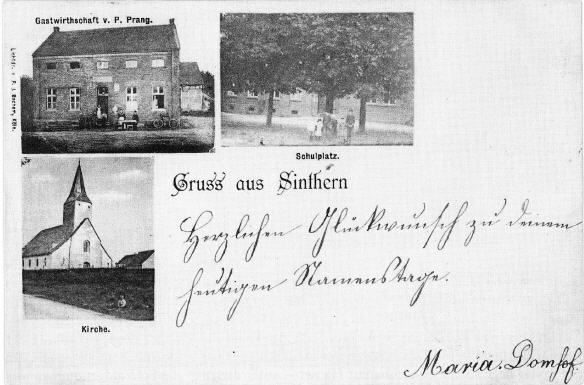 Gastwirthschaft v. P. Prang.
Schulplatz.
Gruss aus Sinthern
Herzlichen Glückwunsch zu deinem
heutigen Namenstage.
Kirche.
Maria. Domhof